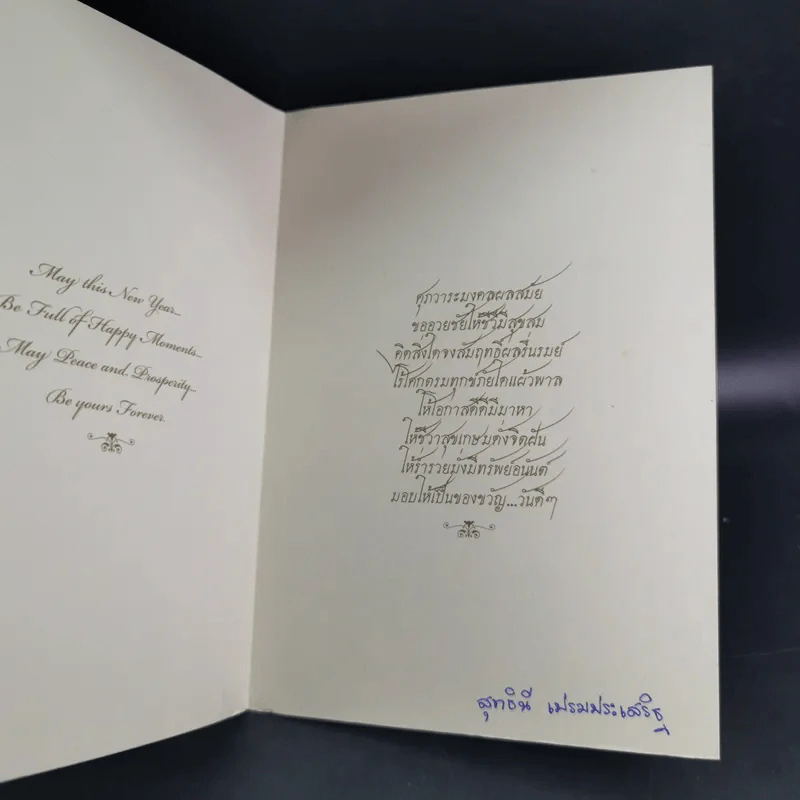 May this New Year...
Be Full of Happy Moments...
May Peace and Prosperity...
Be yours Forever.
ศุภวาระมงคลผลสมัย
ขออวยชัยให้ชีวีมีสุขสม
คิดสิ่งใดจงสัมฤทธิ์ผลรื่นรมย์
ไร้โศกตรมทุกข์ภัยใดแผ้วพาล
ให้โอกาสดีดีมีมาหา
ให้ชีวาสุขเกษมดั่งจิตฝัน
ให้ร่ำรวยมั่งมีทรัพย์อนันต์
มอบให้เป็นของขวัญ...วันดีๆ
สุทธินี เปรมประเสริฐ